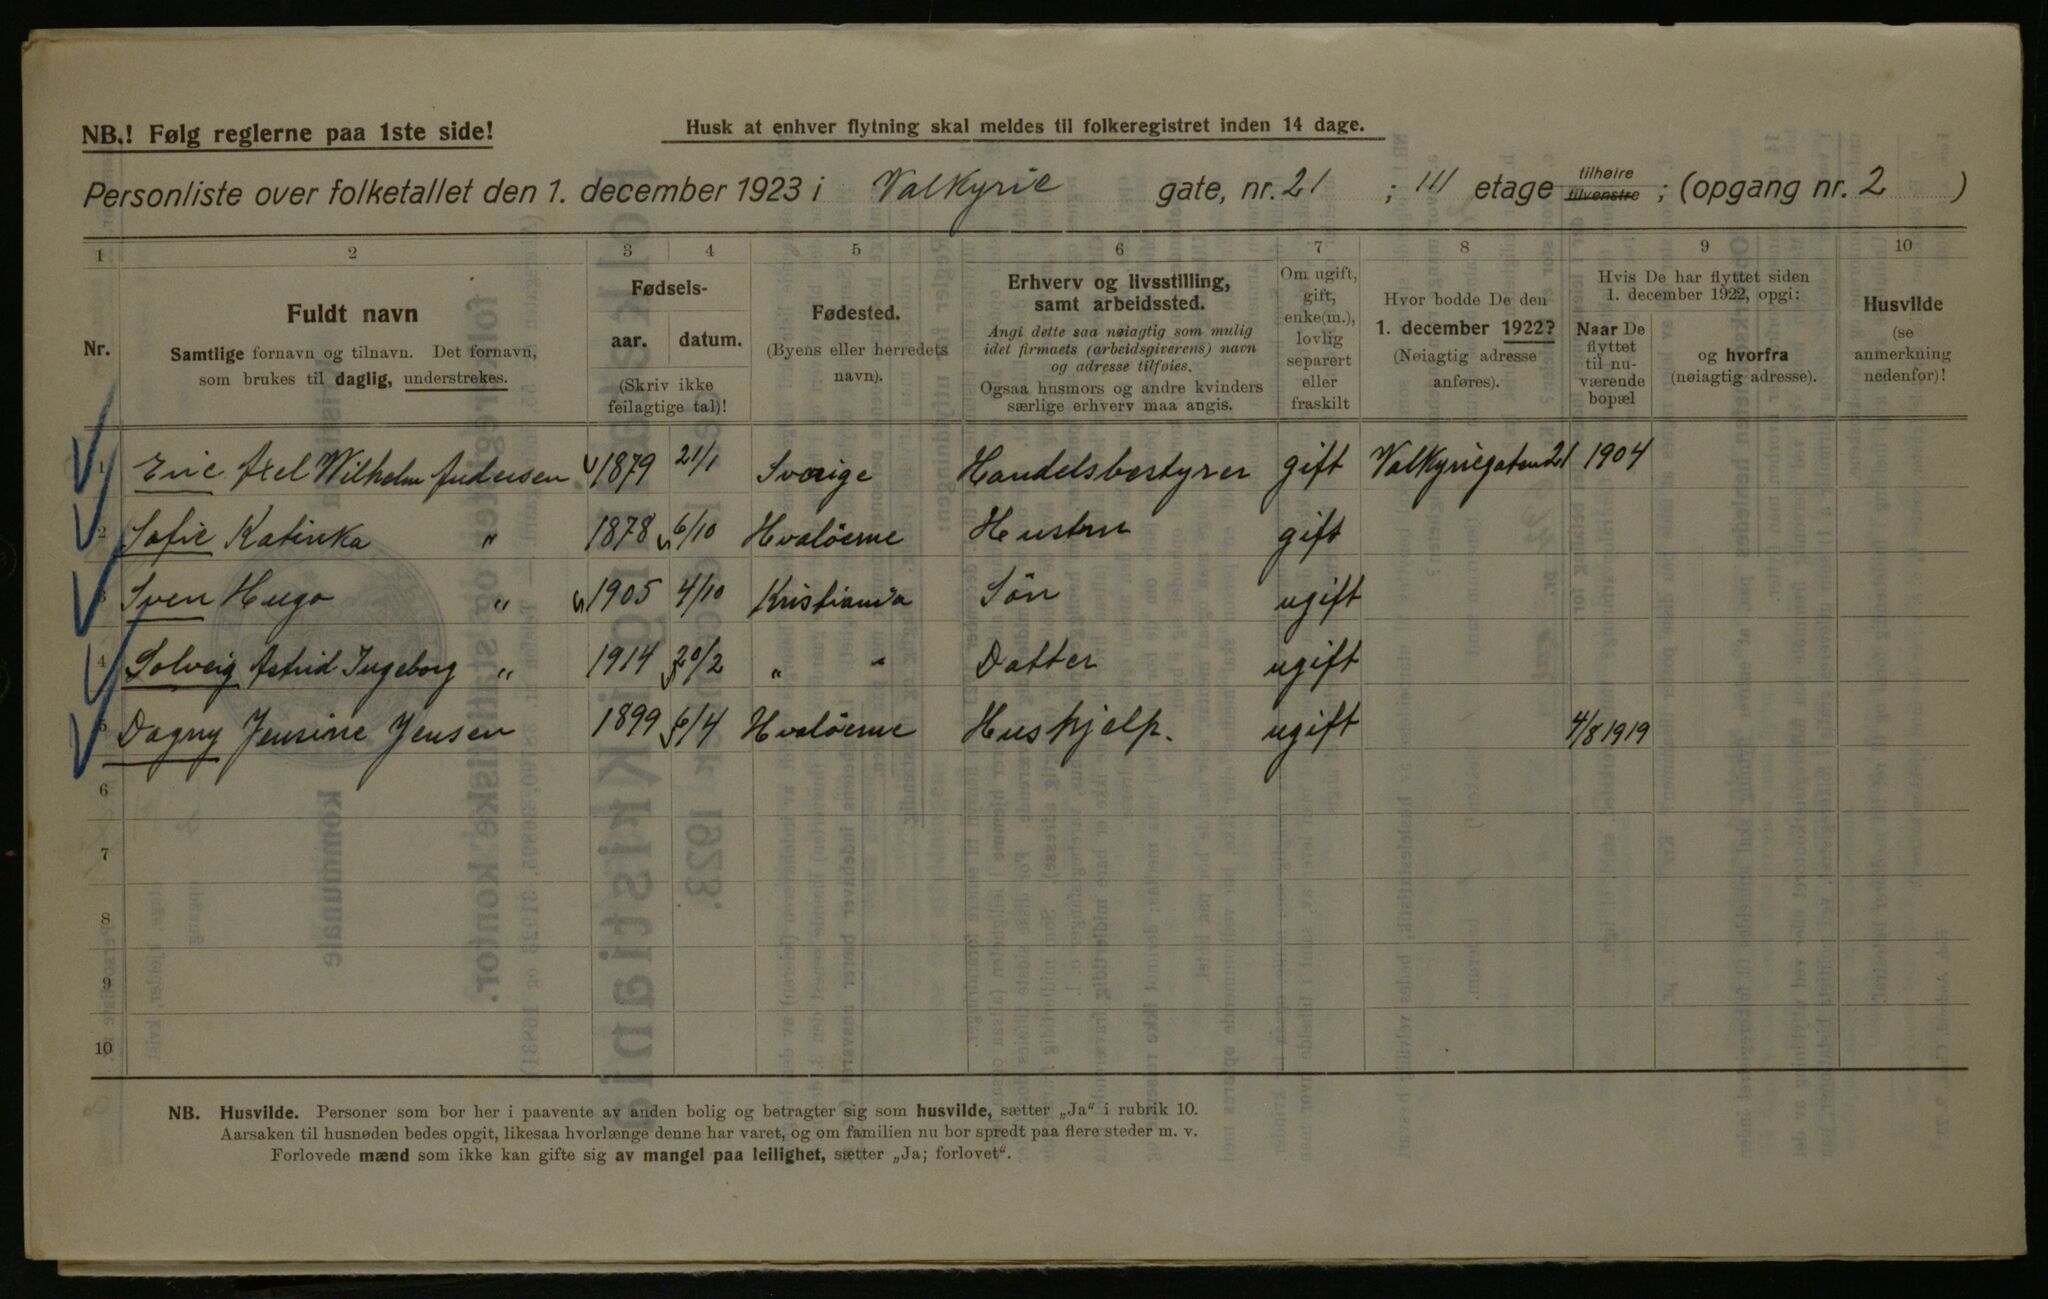 NB.! Følg reglerne paa 1ste side!
Husk at enhver flytning skal meldes til folkeregistret inden 14 dage.
Personliste over folketallet den 1. december 1923 i Valkyrie gate, nr. 21 ; III etage tilhøire tilvenstre ; (opgang nr. 2 )
1 2 3 4 5 6 7 8 9 10
Nr.
Fuldt navn
Samtlige fornavn og tilnavn. Det fornavn,
som brukes til daglig, understrekes.
Fødsels-
aar. datum.
(Skriv ikke
feilagtige tal)!
Fødested.
(Byens eller herredets
navn).
Erhverv og livsstilling,
samt arbeidssted.
Angi dette saa nøiagtig som mulig
idet firmaets (arbeidsgiverens) navn
og adresse tilføies.
Ogsaa husmors og andre kvinders
særlige erhverv maa angis.
Om ugift,
gift,
enke(m.),
lovlig
separert
eller
fraskilt
Hvor bodde De den
1. december 1922?
(Nøiagtig adresse
anføres).
Hvis De har flyttet siden
1. december 1922, opgi:
Naar De
flyttet
til nu-
værende
bopæl
og hvorfra
(nøiagtig adresse).
Husvilde
(se
anmerkning
nedenfor)!
1 Eric Axel Wilhelm Andersen 1879 21/1 Sverige Handelsbestyrer gift Valkyriegaten 21 1904
2 Sofie Katinka " 1878 6/10 Hvaløerne Hustru gift
3 Sven Hugo " 1905 4/10 Kristiania Sön ugift
4 Solveig Astrid Ingeborg " 1914 20/2 " " Datter ugift
5 Dagny Jensine Jensen 1899 6/4 Hvaløerne Hushjelp. ugift 4/8 1919
6
7
8
9
10
NB. Husvilde. Personer som bor her i paavente av anden bolig og betragter sig som husvilde, sætter „Ja" i rubrik 10.
Aarsaken til husnøden bedes opgit, likesaa hvorlænge denne har varet, og om familien nu bor spredt paa flere steder m. v.
Forlovede mænd som ikke kan gifte sig av mangel paa leilighet, sætter „Ja; forlovet".